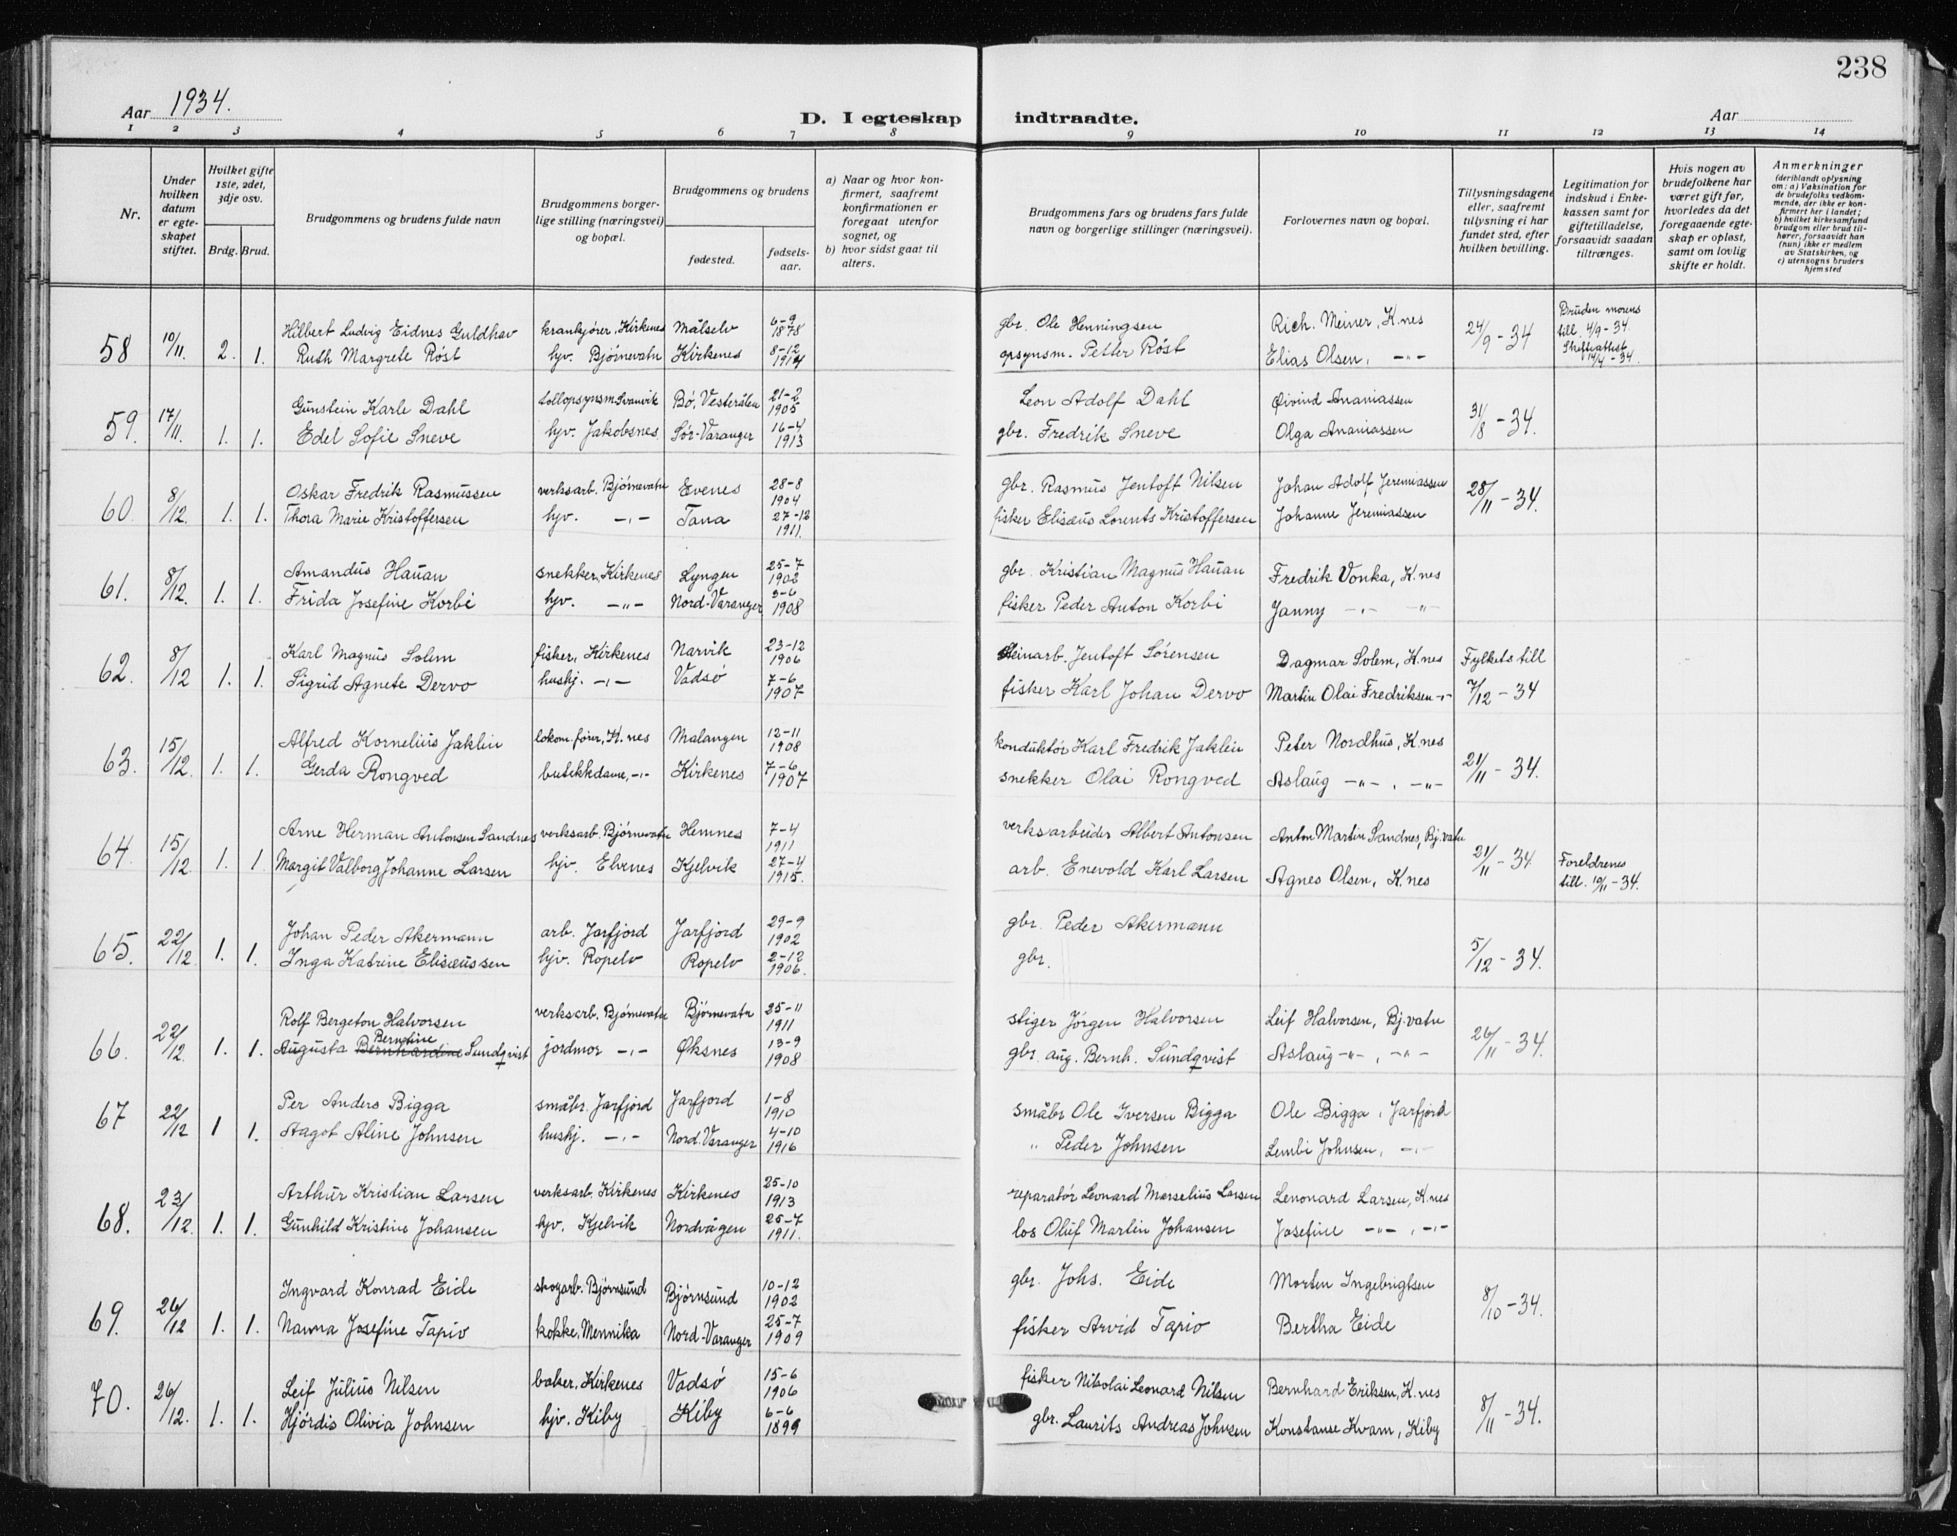 238
Aar 1934.
D. I egteskap indtraadte.
Aar
1 2 3 4 5 6 7 8 9 10 11 12 13 14
Nr.
Under hvilken datum er egteskapet stiftet.
Hvilket gifte 1ste, 2det, 3dje osv.
Brdg. Brud.
Brudgommens og brudens fulde navn
Brudgommens borgerlige stilling (næringsvei) og bopæl.
Brudgommens og brudens
fødested.
fødselsaar.
a) Naar og hvor konfirmert, saafremt konfirmationen er foregaat utenfor sognet, og
b) hvor sidst gaat til alters.
Brudgommens fars og brudens fars fulde navn og borgerlige stillinger (næringsvei).
Forlovernes navn og bopæl.
Tillysningsdagene eller, saafremt tillysning ei har fundet sted, efter hvilken bevilling.
Legitimation for indskud i Enkekassen samt for giftetilladelse, forsaavidt saadan tiltrænges.
Hvis nogen av brudefolkene har været gift før, hvorledes da det foregaaende egteskap er opløst, samt om lovlig skifte er holdt.
Anmerkninger (deriblandt oplysning om: a) Vaksination for de brudefolks vedkommende, der ikke er konfirmert her i landet; b) hvilket kirkesamfund brudgom eller brud tilhører, forsaavidt han (hun) ikke er medlem av Statskirken, og c) utensogns bruders hjemsted
58 10/11 2. 1. Hilbert Ludvig Eidnes Guldhav krankjører, Kirkenes Målselv 6-9 1878 gbr. Ole Henningsen Rich. Meiner, K.nes 24/9-34 Bruden morens till 4/9-34.
Ruth Margrete Røst hjv. Bjørnevatn Kirkenes 8-12 1914 opsynsm. Petter Røst Elias Olsen, -"-
59. 17/11. 1. 1. Gunstein Karle Dahl tollopsynsm Svanvik Bø, Vesterålen 21-2 1905 Leon Adolf Dahl Øivind Ananiassen 31/8-34.
Edel Sofie Sneve hjv. Jakobsnes Sør-Varanger 16-4 1913 gbr. Fredrik Sneve Olga Ananiassen
60. 8/12. 1. 1. Oskar Fredrik Rasmussen verksarb. Bjørnevatn Evenes 28-8 1904 gbr. Rasmus Jentoft Nilsen Johan Adolf Jeremiassen 28/11-34.
Thora Marie Kristoffersen hjv. -"- Tana 27-12 1911. fisker Elisæus Lorents Kristoffersen Johanne Jeremiassen
61. 8/12. 1. 1. Amandus Hauan snekker, Kirkenes Lyngen 25-7 1902 gbr. Kristian Magnus Hauan Fredrik Vonka, K.nes
Frida Josefine Korbi hjv. -"- Nord-Varanger 3-6 1908 fisker Peder Anton Korbi Janny -"- -"-
62. 8/12 1. 1. Karl Magnus Solem fisker, Kirkenes Narvik 23-12 1906 Steinarb. Jentoft Sørensen Dagmar Solem, K.nes Fylkets till 7/12-34
Sigrid Agnete Dervo hushj. -"- Vadsø 7-6 1907 fisker Karl Johan Dervo Martin Olai Fredriksen -"-
63. 15/12. 1. 1. Alfred Kornelius Jaklin lokom.fører, K.nes Malangen 12-11 1908 konduktør Karl Fredrik Jaklin Peter Nordhus, K.nes 21/11-34.
Gerda Rongved butikkdame, -"- Kirkenes 7-6 1907 snekker Olai Rongved Aslaug -"- , -"-
64. 15/12. 1. 1 Arne Herman Antonsen Sandnes verksarb. Bjørnevatn Hemnes 7-4 1911 verksarbeider Albert Antonsen Anton Martin Sandnes, Bj.vatn 21/11-34
Margit Valborg Johanne Larsen hjv. Elvenes Kjelvik 27-4 1915. arb. Enevold Karl Larsen Agnes Olsen, K.nes Foreldrenes till. 10/11-34.
65. 22/12. 1. 1. Johan Peder Akermann arb. Jarfjord Jarfjord 29-9 1902 gbr. Peder Akermann 5/12-34.
Inga Katrine Elisæussen hjv. Ropelv Ropelv 2-12 1906. gbr.
66. 22/12. 1. 1. Rolf Bergeton Halvorsen verksarb. Bjørnevatn Bjørnevatn 25-11 1911 stiger Jørgen Halvorsen Leif Halvorsen, Bj.vatn 26/11-34.
Augusta Bernhardine Berntine Sundqvist jordmor -"- Øksnes 13-9 1908 gbr. aug. Bernh. Sundqvist Aslaug -"- , -"-
67 22/12 1 1. Per Anders Bigga småbr. Jarfjord Jarfjord 1-8 1910 småbr Ole Iversen Bigga Ole Bigga, Jarfjord
Aagot Aline Johnsen hushj. -"- Nord-Varanger 4-10 1916 " Peder Johnsen Lembi Johnsen, -"-
68. 23/12. 1. 1. Arthur Kristian Larsen verksarb. Kirkenes Kirkenes 25-10 1913 reparatør Leonard Marselius Larsen Lenonard Larsen, K.nes
Gunhild Kristine Johansen hjv. Kjelvik Nordvågen 25-7 1911. los Oluf Martin Johansen Josefine -"- , -"-
69. 26/12 1. 1. Ingvard Konrad Eide skogarb. Bjørnsund Bjørnsund 10-12 1902 gbr. Johs. Eide Morten Ingebrigtsen 8/10-34.
Nanna Josefine Tapio kokke, Mennika Nord-Varanger 25-7 1909 fisker Arvid Tapio Bertha Eide
70. 26/12. 1. 1. Leif Julius Nilsen baker, Kirkenes Vadsø 15-6 1906 fisker Nikolai Leonard Nilsen Bernhard Eriksen, K.nes 8/11-34.
Hjørdis Olivia Johnsen hjv. Kiby Kiby 6-6 1899 gbr. Laurits Andreas Johnsen Konstanse Kvam, Kiby